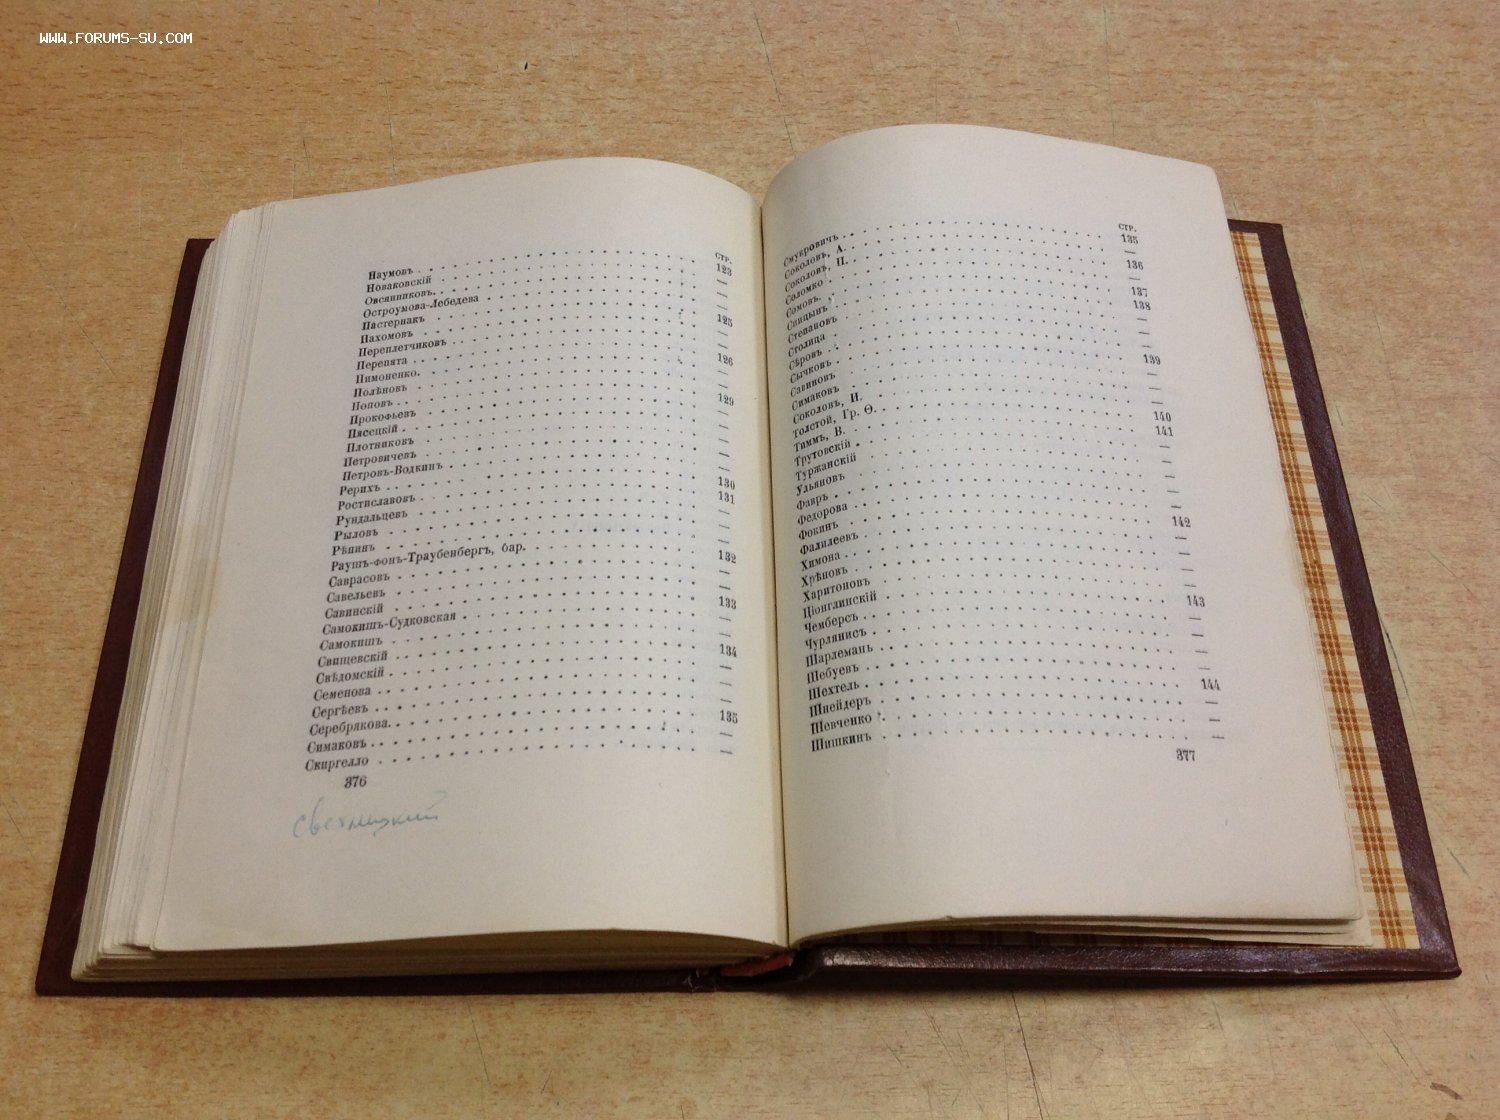 WWW.FORUMS-SU.COM
стр.
Наумовъ . . . 123
Новаковскій . . . —
Овсянниковъ. . . . —
Остроумова-Лебедева . . . —
Пастернакъ . . . 125
Пахомовъ . . . —
Переплетчиковъ . . . —
Перепята . . . 126
Пимоненко. . . . —
Полѣновъ . . . —
Поповъ . . . 129
Прокофьевъ . . . —
Пясецкій . . . —
Плотниковъ . . . —
Петровичевъ . . . —
Петровъ-Водкинъ . . . —
Рерихъ . . . 130
Ростиславовъ . . . 131
Рундальцевъ . . . —
Рыловъ . . . —
Рѣпинъ . . . —
Раушъ-фонъ-Траубенбергъ, бар. . . . 132
Саврасовъ . . . —
Савельевъ . . . —
Савинскій . . . 133
Самокишъ-Судковская . . . —
Самокишъ . . . —
Свищевскій . . . 134
Свѣдомскій . . . —
Семенова . . . —
Сергѣевъ . . . —
Серебрякова. . . . 135
Симаковъ . . . —
Скиргелло . . . —
376
стр.
Смукровичъ . . . 135
Соколовъ, А. . . . —
Соколовъ, П. . . . 136
Соломко . . . —
Сомовъ. . . . 137
Спицынъ . . . 138
Степановъ . . . —
Столица . . . —
Сѣровъ . . . —
Сычковъ . . . 139
Савиновъ . . . —
Симаковъ . . . —
Соколовъ, И. . . . —
Толстой, Гр. Ѳ. . . . 140
Тиммъ, В. . . . 141
Трутовскій . . . —
Туржанскій . . . —
Ульяновъ . . . —
Фавръ . . . —
Федорова . . . —
Фокинъ . . . 142
Фалилеевъ . . . —
Химона . . . —
Хрѣновъ . . . —
Харитоновъ . . . —
Ціонглинскій . . . 143
Чемберсъ . . . —
Чурлянисъ . . . —
Шарлемань . . . —
Шебуевъ . . . —
Шехтель . . . 144
Шнейдеръ . . . —
Шевченко . . . —
Шишкинъ . . . —
377